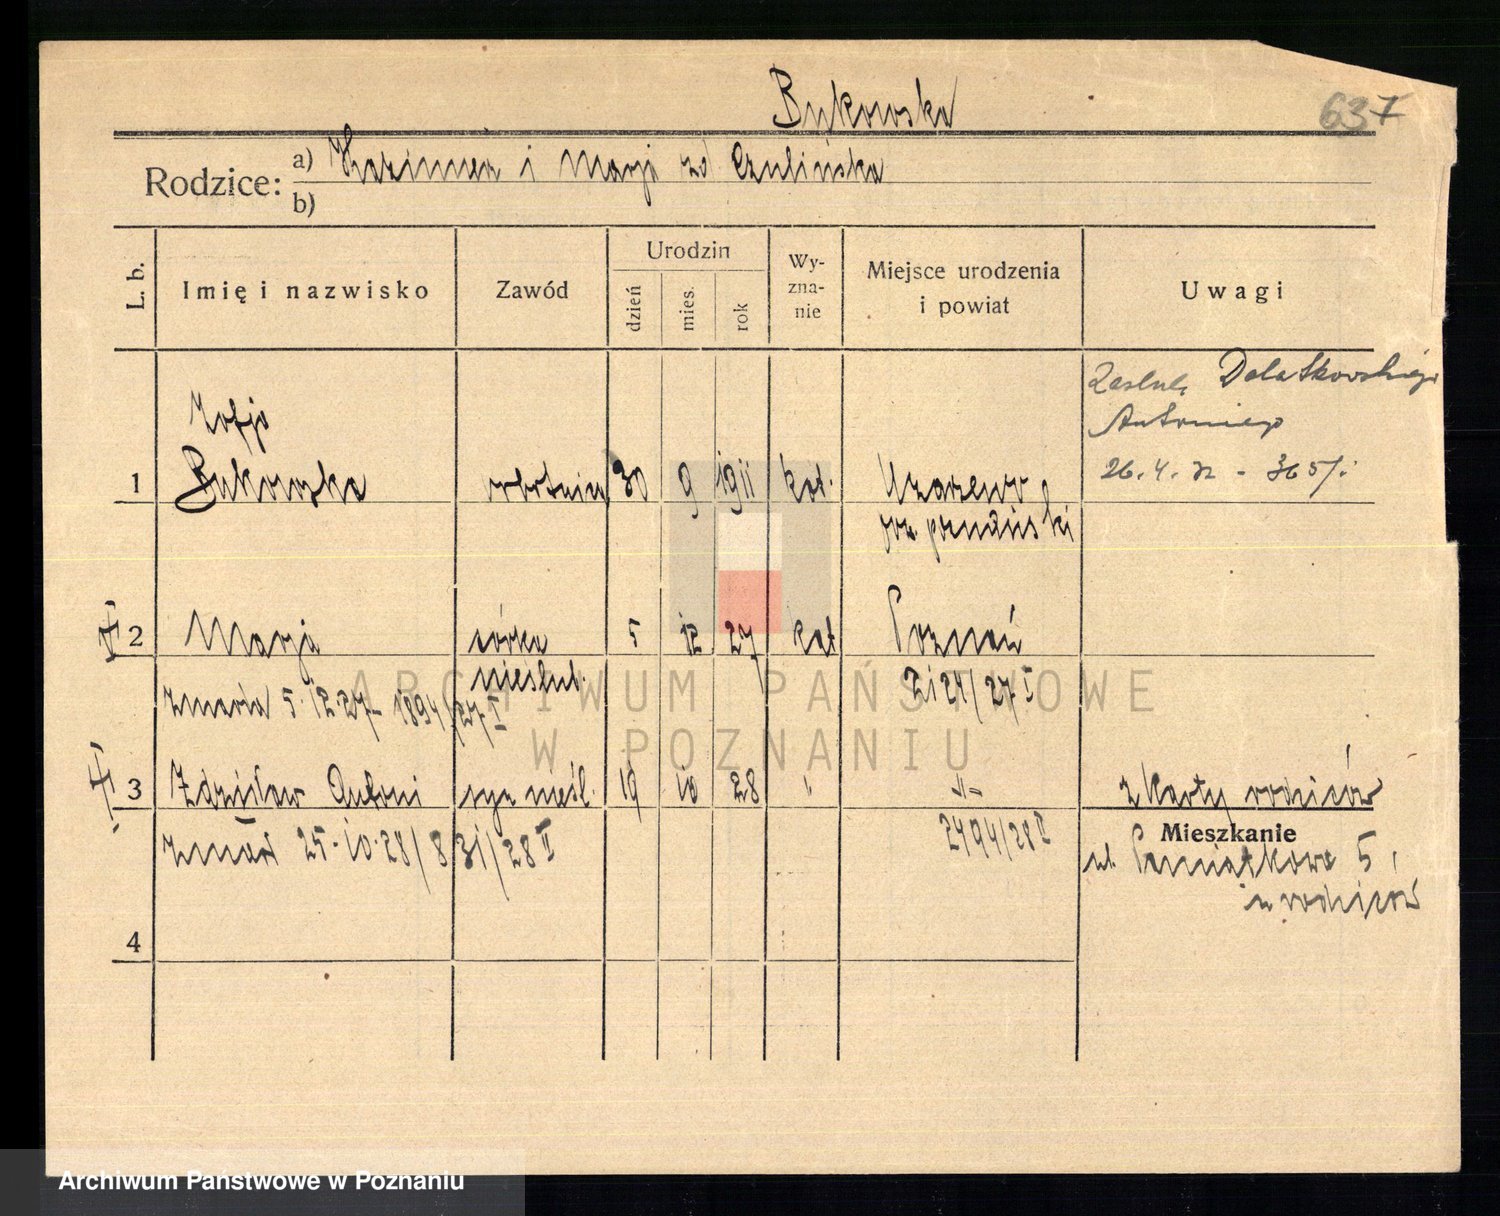 Bukowska
637
Rodzice: a) Kazimierz i Marja zd Czulińska
b)
L. b.
Imię i nazwisko
Zawód
Urodzin
dzień
mies.
rok
Wy-
zna-
nie
Miejsce urodzenia
i powiat
Uwagi
Zofja
1 Bukowska robotnica 30 9 1911 kat. Uzarzewo
pow. poznański
Dolatkowskiego
Antoniego
26.4.32 - 365/
2 Marja córka 5 12 27 kat Poznań
nieślub. 2124/27 I
zmarła 5.12.27 - 1894/27 I
3 Zdzisław Antoni syn nieśl. 19 10 28 " -"- z karty rodziców
zmarł 25.10.28/831/28 II 2494/28 II
Mieszkanie
ul. Pamiątkowa 5,
u rodziców
4
ARCHIWUM PAŃSTWOWE
W POZNANIU
Archiwum Państwowe w Poznaniu